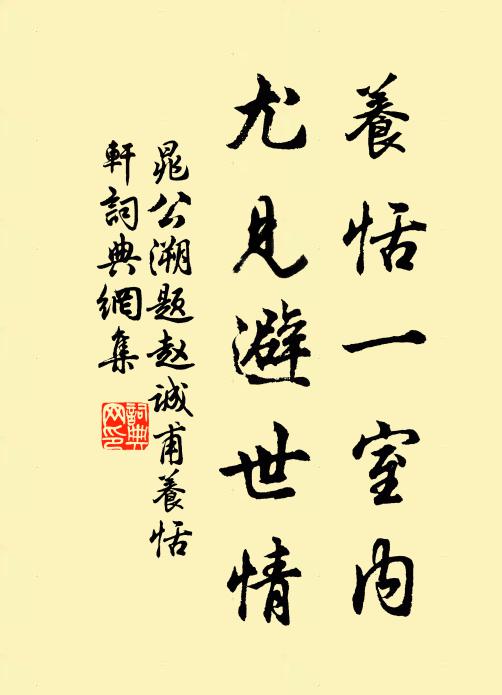 養恬一室内
尤見避世情
晁公溯题赵诚甫養恬
軒詞典網集
詞典
网印